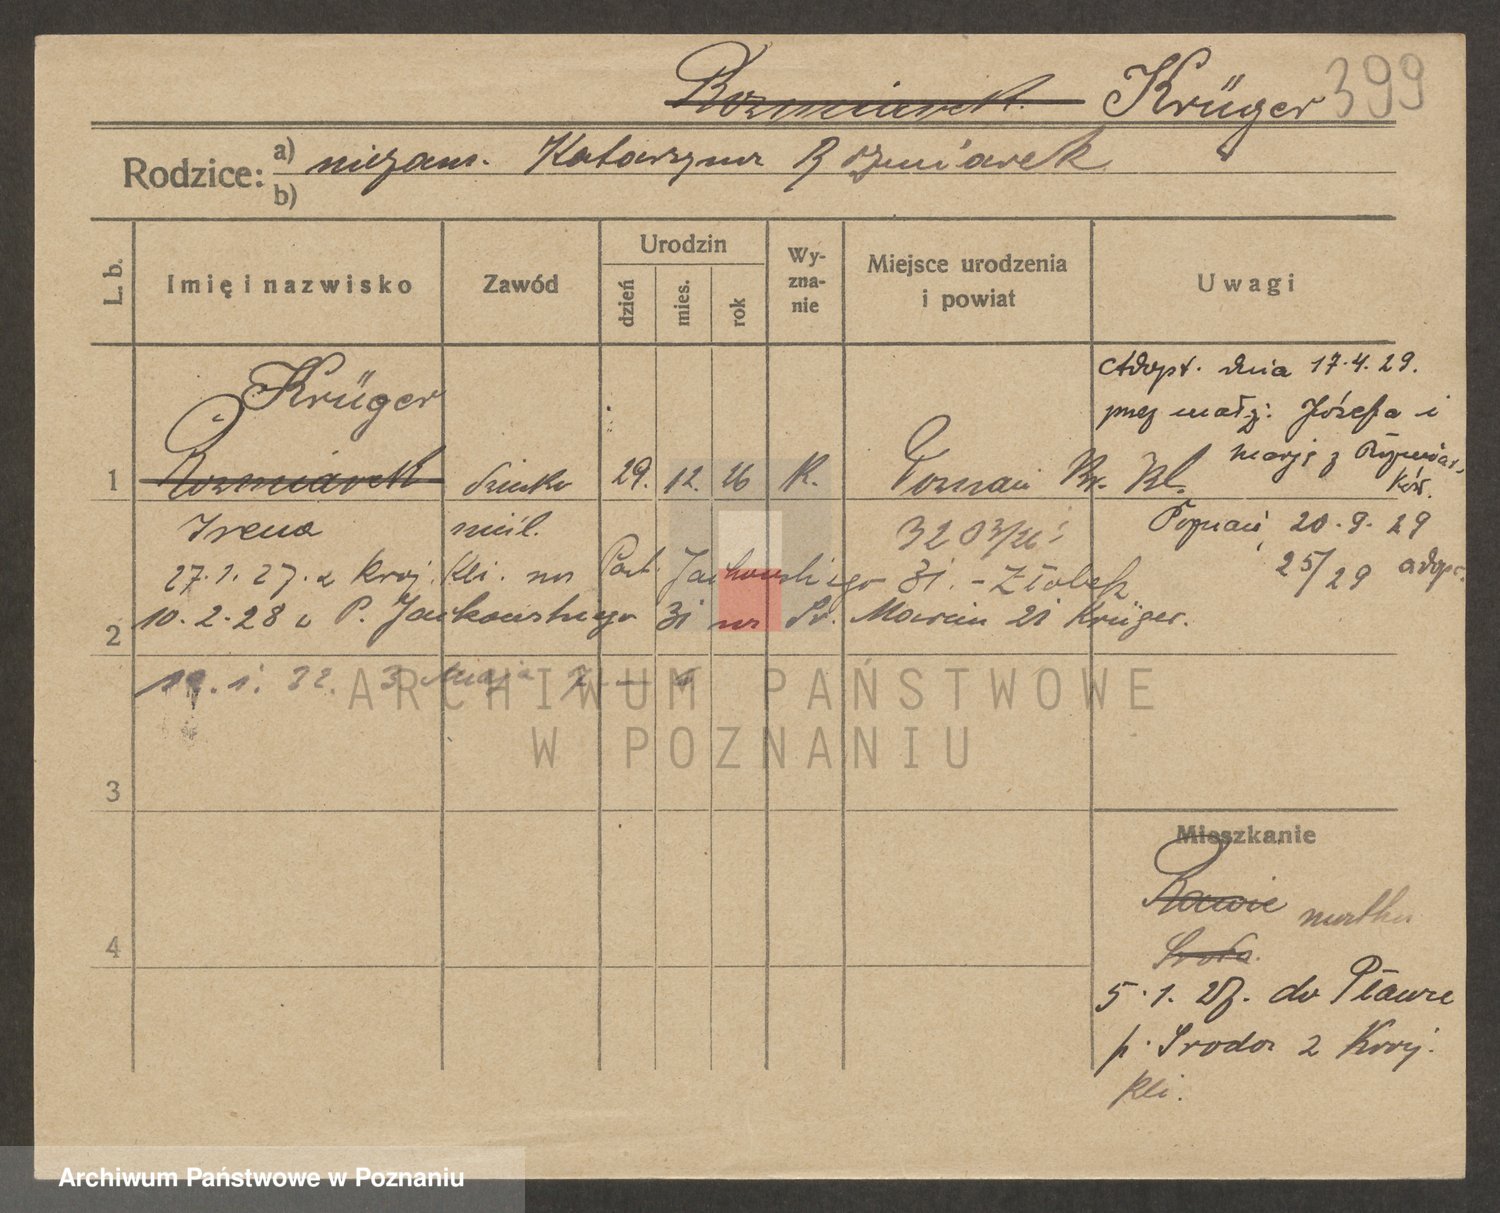 Rozmiarek Krüger 399
Rodzice: a) niezam. Katarzyna Rozmiarek
b)
L. b.
Imię i nazwisko
Zawód
Urodzin
dzień
mies.
rok
Wy-
zna-
nie
Miejsce urodzenia
i powiat
Uwagi
Krüger
1 Rozmiarek 29. 12. 26 K. Poznań Kr. Kl.
Irena
3203/26
Adopt. dnia 17.4.29.
przez małż. Józefa i
Marję z
Poznań, 20.9.29
25/29 adopt.
27.1.27. z Kroj. Kli. na Pat. Jackowskiego 31. - Żłobek
2 10.2.28 P. Jackowskiego 31 na Św. Marcin 21 Krüger.
19.1.32. 3 Maja
3
4
Mieszkanie
matka
Środa.
5.1.27. do Pławce
p. Środa z Kroj.
Kli.
ARCHIWUM PAŃSTWOWE
W POZNANIU
Archiwum Państwowe w Poznaniu